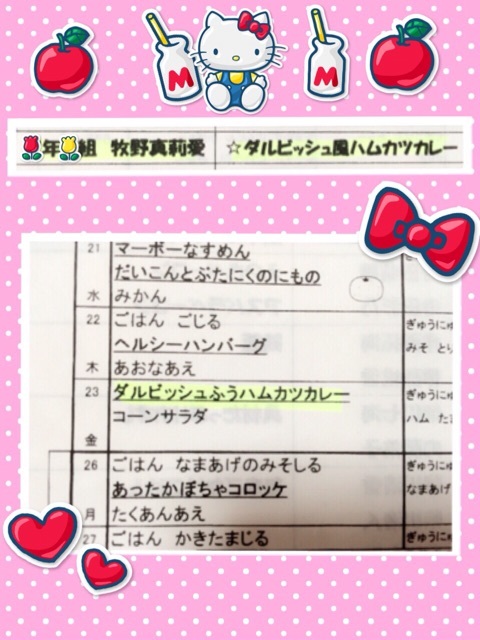 M
M
年 組 牧野真莉愛 ☆ダルビッシュ風ハムカツカレー
21 マーボーなすめん
だいこんとぶたにくのにもの
水 みかん
22 ごはん ごじる ぎゅうにゅ
ヘルシーハンバーグ みそ とり
木 あおなあえ
23 ダルビッシュふうハムカツカレー ぎゅうにゅ
コーンサラダ ハム た
金
26 ごはん なまあげのみそしる ぎゅうにゅ
あったかぼちゃコロッケ なまあげ
月 たくあんあえ
27 ごはん かきたまじる ぎゅうにゅ